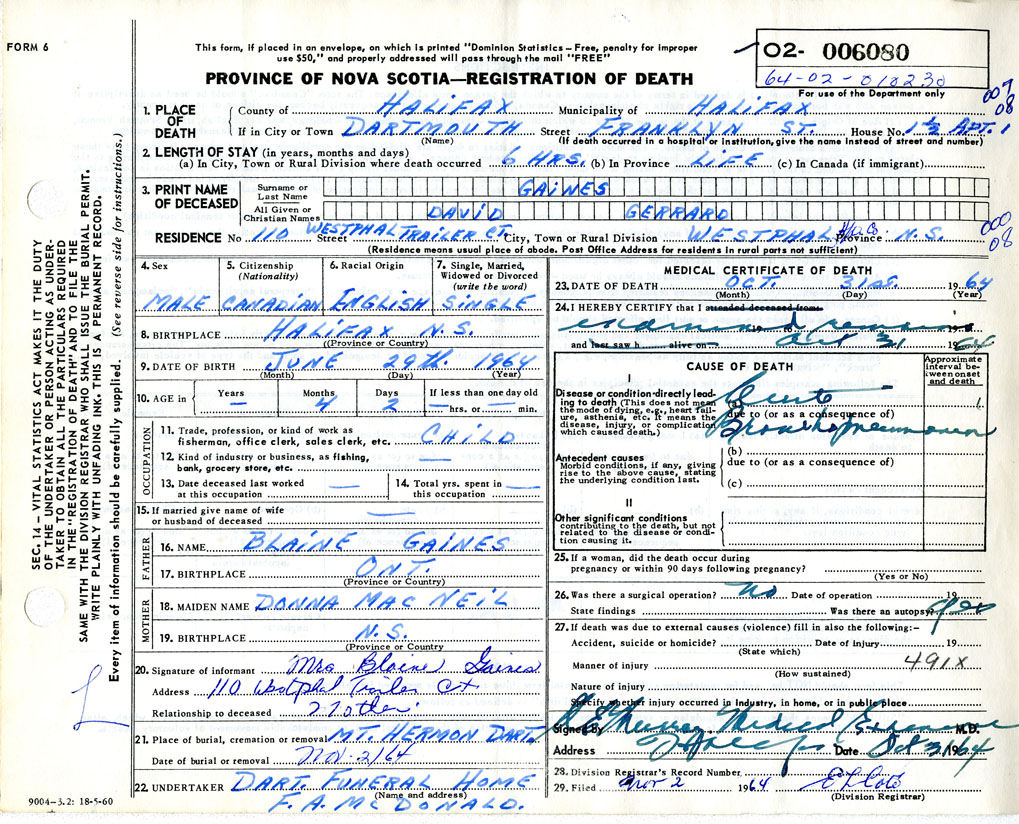 FORM 6
This form, if placed in an envelope, on which is printed "Dominion Statistics – Free, penalty for improper
use $50," and properly addressed will pass through the mail "FREE"
PROVINCE OF NOVA SCOTIA—REGISTRATION OF DEATH
02- 006080
64-02-010230
For use of the Department only
007
08
1. PLACE OF DEATH
County of HALIFAX Municipality of HALIFAX
If in City or Town DARTMOUTH Street FRANKLYN ST. House No. 1 1/2 APT. 1
(Name) (If death occurred in a hospital or institution, give the name instead of street and number)
2. LENGTH OF STAY (in years, months and days)
(a) In City, Town or Rural Division where death occurred 6 HRS. (b) In Province LIFE (c) In Canada (if immigrant)
3. PRINT NAME OF DECEASED
Surname or Last Name GAINES
All Given or Christian Names DAVID GERRARD
000
08
RESIDENCE No 110 Street WESTPHAL TRAILER CT. City, Town or Rural Division WESTPHAL Province N.S.
(Residence means usual place of abode. Post Office Address for residents in rural parts not sufficient)
4. Sex
5. Citizenship (Nationality)
6. Racial Origin
7. Single, Married, Widowed or Divorced (write the word)
MALE CANADIAN ENGLISH SINGLE
8. BIRTHPLACE HALIFAX N.S.
(Province or Country)
9. DATE OF BIRTH JUNE 29th. 1964
(Month) (Day) (Year)
10. AGE in Years – Months 4 Days 2 If less than one day old – hrs. or – min.
OCCUPATION
11. Trade, profession, or kind of work as
fisherman, office clerk, sales clerk, etc. CHILD
12. Kind of industry or business, as fishing,
bank, grocery store, etc. —
13. Date deceased last worked
at this occupation —
14. Total yrs. spent in
this occupation —
15. If married give name of wife
or husband of deceased —
FATHER
16. NAME BLAINE GAINES
17. BIRTHPLACE ONT.
(Province or Country)
MOTHER
18. MAIDEN NAME DONNA MAC NEIL
19. BIRTHPLACE N.S.
(Province or Country
20. Signature of informant Mrs Blaine Gaines
Address 110 Westphal Trailer Ct
Relationship to deceased Mother
21. Place of burial, cremation or removal MT. HERMON DART.
Date of burial or removal Nov. 2/64
22. UNDERTAKER DART. FUNERAL HOME
(Name and address)
F. A. McDONALD.
9004-3.2: 18-5-60
MEDICAL CERTIFICATE OF DEATH
23. DATE OF DEATH OCT. 31st. 1964
(Month) (Day) (Year)
24. I HEREBY CERTIFY that I attended deceased from
examined remains
and last saw h alive on Oct 31 1964
CAUSE OF DEATH
Approximate interval between onset and death
I
Disease or condition directly leading to death (This does not mean the mode of dying, e.g., heart failure, asthenia, etc. It means the disease, injury, or complication which caused death.)
(a) Acute
due to (or as a consequence of)
Bronchopneumonia
Antecedent causes
Morbid conditions, if any, giving rise to the above cause, stating the underlying condition last.
(b)
due to (or as a consequence of)
(c)
II
Other significant conditions
contributing to the death, but not related to the disease or condition causing it.
25. If a woman, did the death occur during
pregnancy or within 90 days following pregnancy?
(Yes or No)
26. Was there a surgical operation? No Date of operation 19
State findings Was there an autopsy? Yes
27. If death was due to external causes (violence) fill in also the following:-
Accident, suicide or homicide? Date of injury 19
(State which)
Manner of injury 491X
(How sustained)
Nature of injury
Specify whether injury occurred in industry, in home, or in public place
Signed by Medical Examiner M.D.
Address Halifax Date Oct 31/64
28. Division Registrar's Record Number
29. Filed Nov 2 1964
(Division Registrar)
SEC. 14 – VITAL STATISTICS ACT MAKES IT THE DUTY
OF THE UNDERTAKER OR PERSON ACTING AS UNDER-
TAKER TO OBTAIN ALL THE PARTICULARS REQUIRED
IN THE "REGISTRATION OF DEATH" AND TO FILE THE
SAME WITH THE DIVISION REGISTRAR WHO SHALL ISSUE THE BURIAL PERMIT.
WRITE PLAINLY WITH UNFADING INK. THIS IS A PERMANENT RECORD.
Every item of information should be carefully supplied. (See reverse side for instructions.)